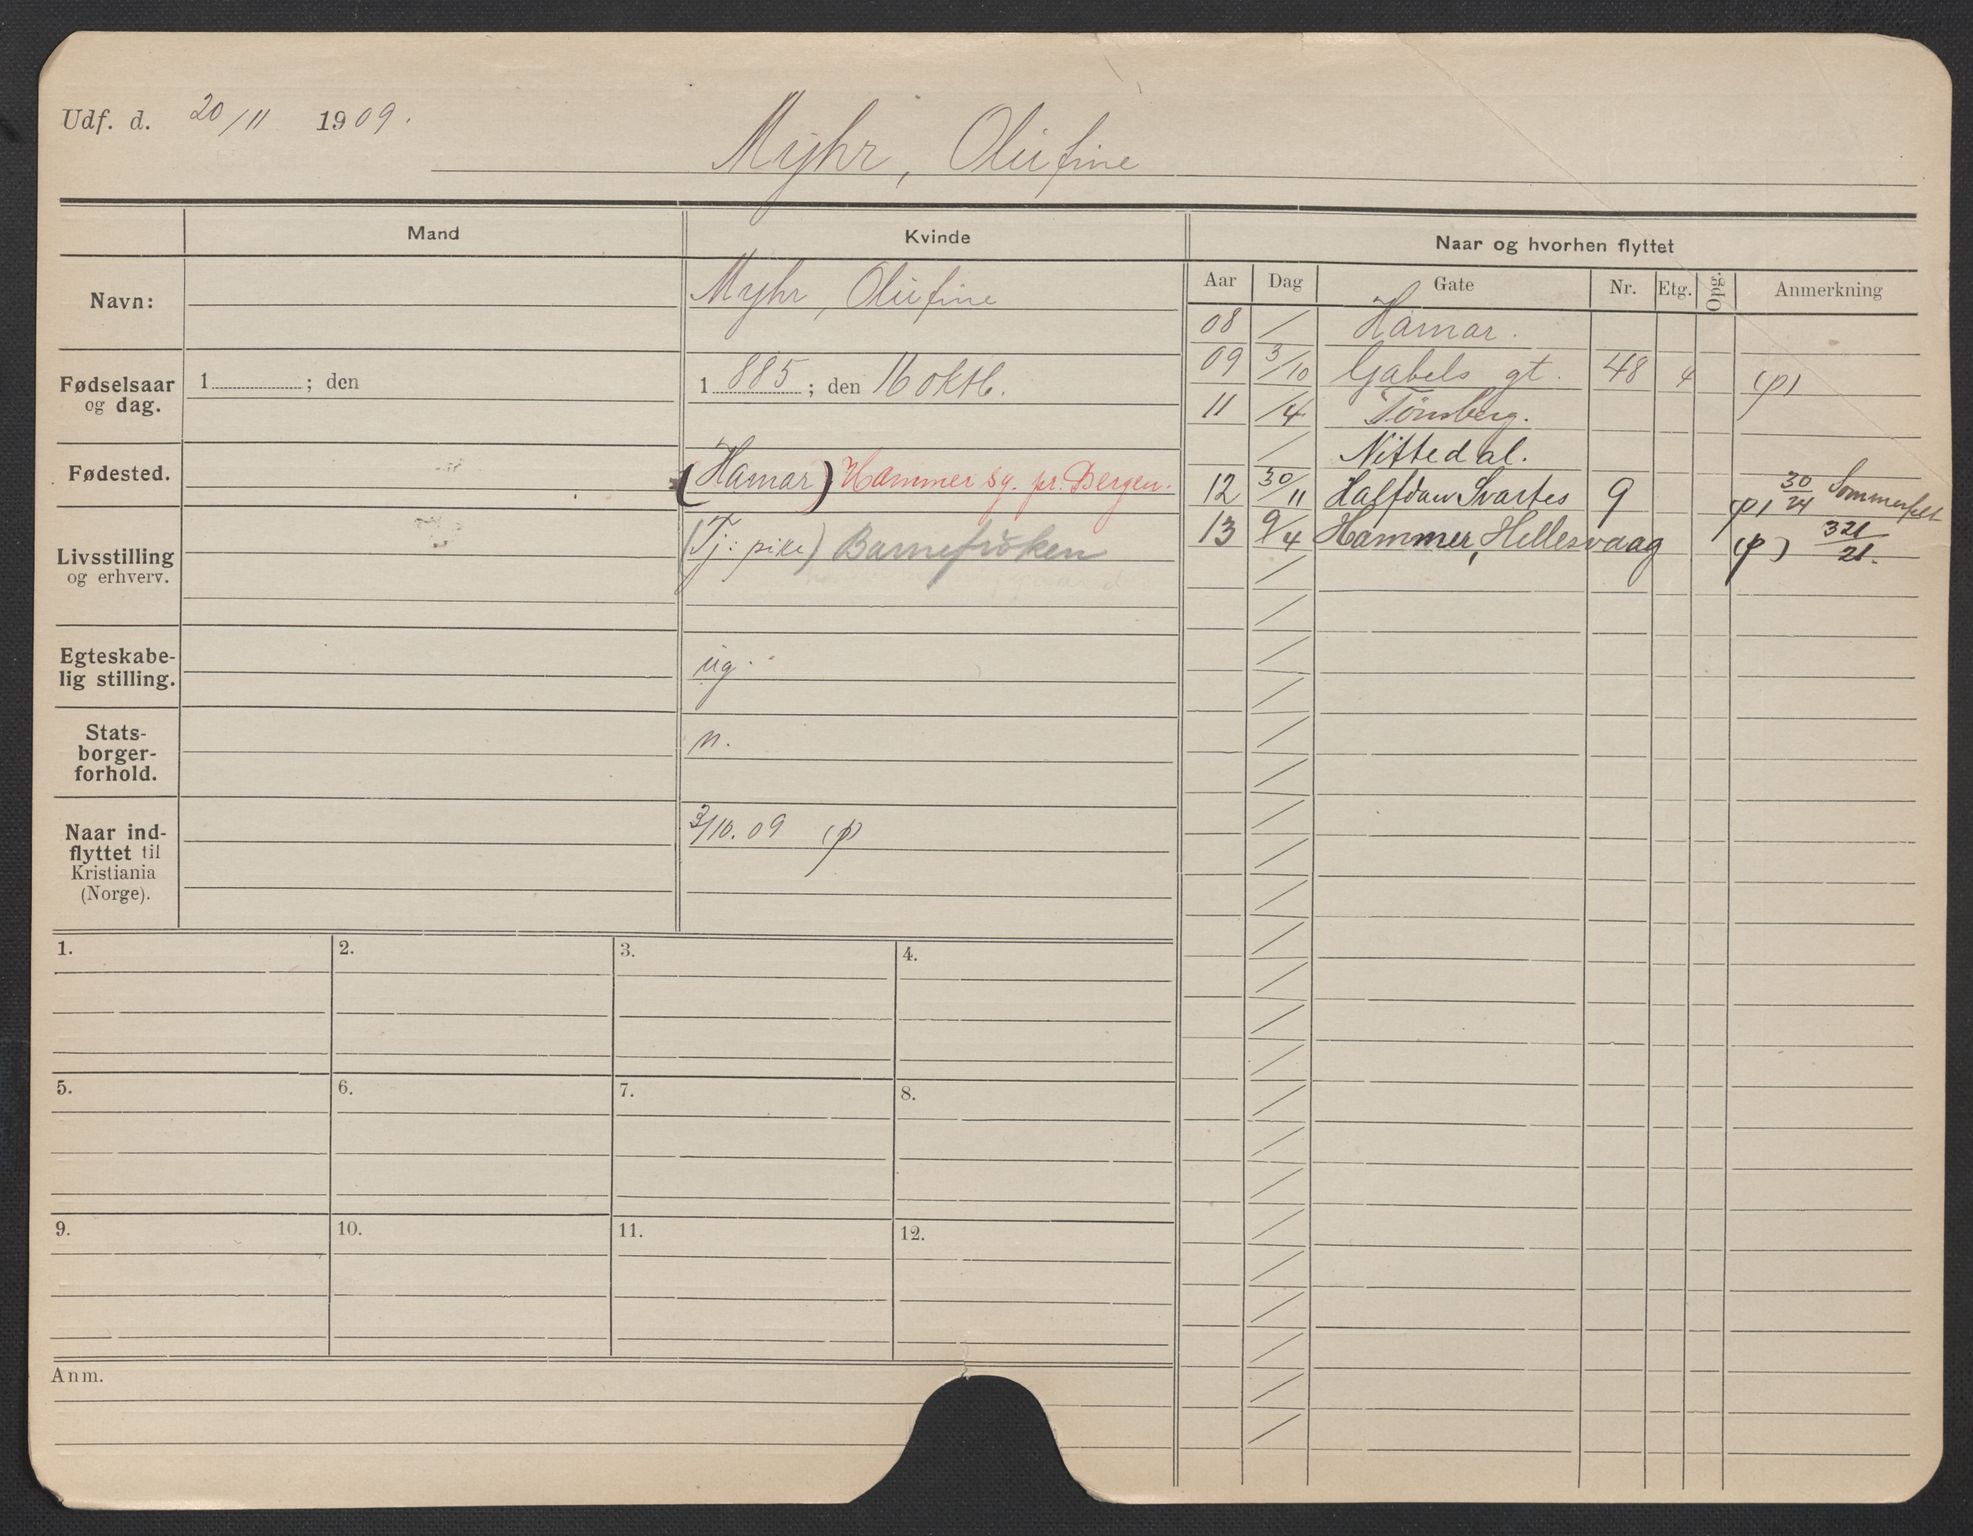 Udf. d. 20/11 1909.
Myhr, Olufine
Mand
Kvinde
Naar og hvorhen flyttet
Navn:
Myhr, Olufine
Fødselsaar og dag.
1 ; den
1 885 ; den 16 oktb.
Fødested.
(Hamar) Hammer sg. pr. Bergen.
Livsstilling og erhverv.
(Tj: pike) Barnefrøken
Egteskabe-
lig stilling.
ug.
Stats-
borger-
forhold.
n.
Naar ind-
flyttet til
Kristiania
(Norge).
3/10. 09 (p)
Aar Dag Gate Nr. Etg. Opg. Anmerkning
08 / Hamar.
09 3/10 Gabels gt. 48 4 (p)
11 /4 Tønsberg.
/ Nittedal.
12 30/11 Halfdan Svartes 9 (p) 30/24 Sommerfelt
13 9/4 Hammer, Hellesvaag (p) 321/21.
1. 2. 3. 4.
5. 6. 7. 8.
9. 10. 11. 12.
Anm.